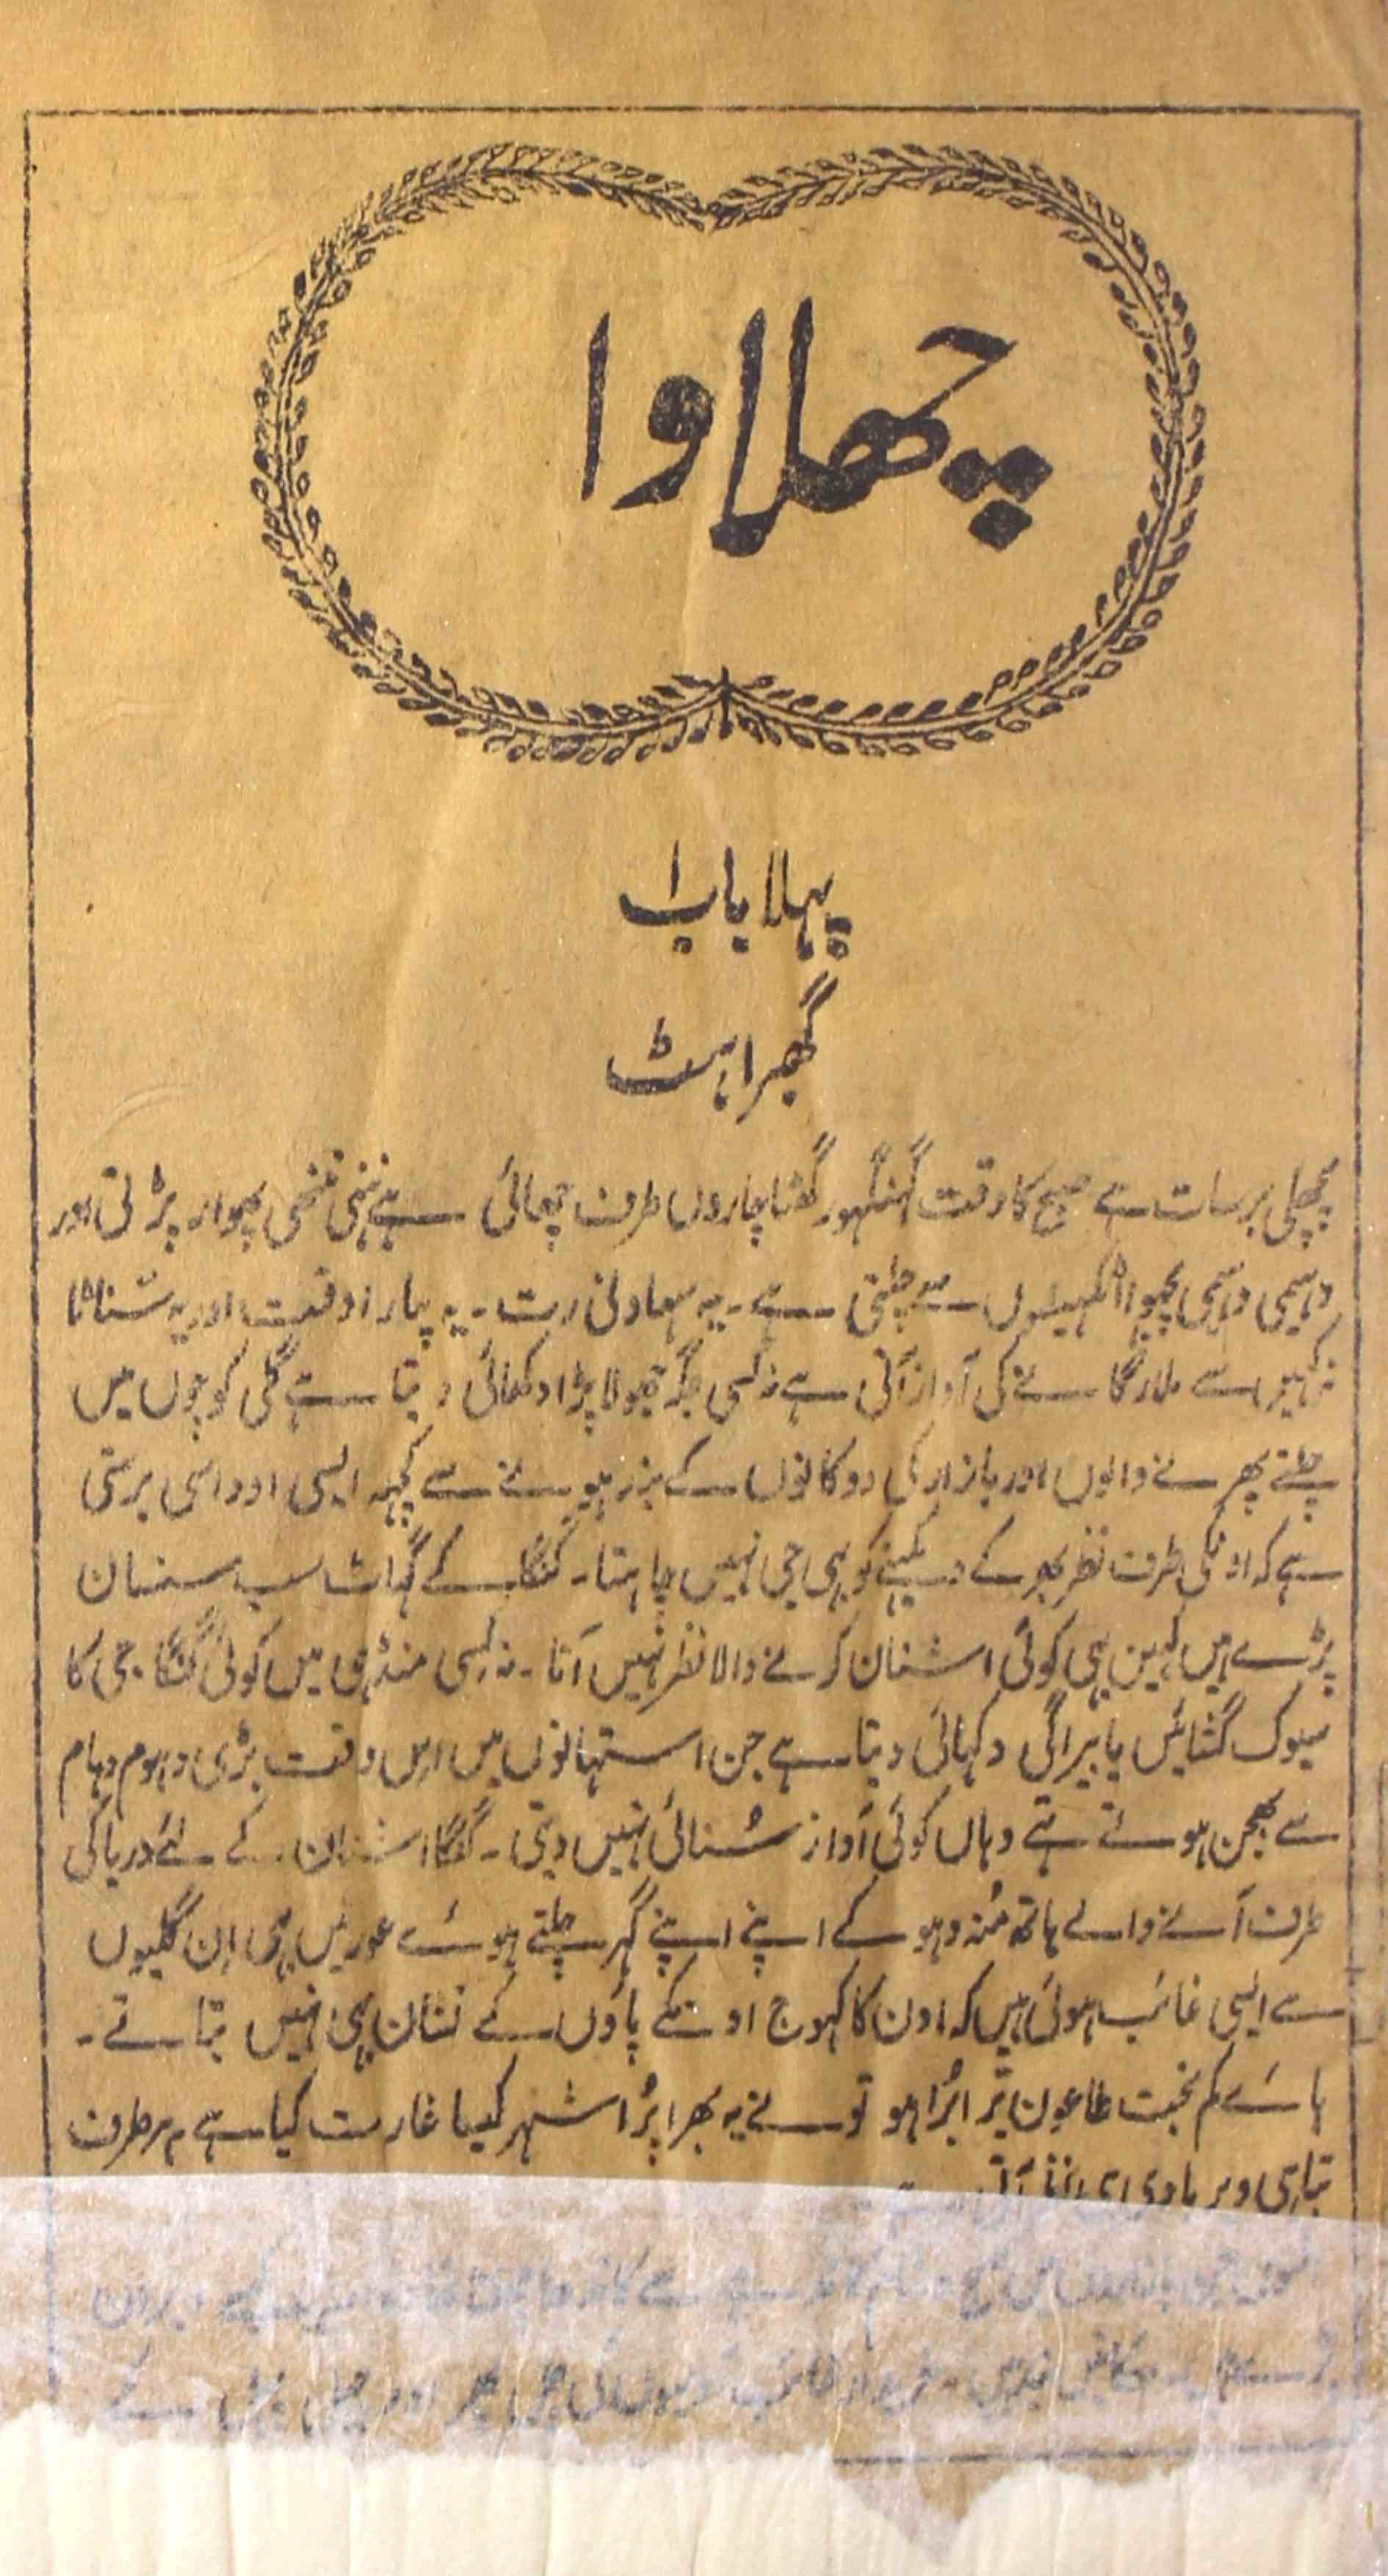 چھلاوا
پہلا باب ۱
گھبراہٹ
پچھلی برسات ہے صبح کا وقت گہنگہور گھٹا چاروں طرف چھائی ہے ننھی ننھی پھوار پڑتی اور
دہیمی دہیمی پچھوا اٹکہیلیوں سے چلتی ہے۔ یہ سہاونی رت۔ یہ پیارا وقت اور یہ سناٹا
نہ کہیں سے ملار گانے کی آواز آتی ہے نہ کسی جگہ جھولا پڑا دکھائی دیتا ہے گلی کوچوں میں
چلنے پھرنے والوں اور بازار کی دوکانوں کے بند ہونے سے کچہہ ایسی اوداسی برستی
ہے کہ اونکی طرف نظر بھر کے دیکہنے کو بہی جی نہیں چاہتا۔ گنگا کے گہاٹ سب سنسان
پڑے ہیں کہیں بہی کوئی اشنان کرنے والا نظر نہیں آتا۔ نہ کسی منڈہی میں کوئی گنگا جی کا
سیوک گشائیں یا بیراگی دکہائی دیتا ہے جن استہانوں میں اس وقت بڑی دہوم دہام
سے بھجن ہوتے تہے وہاں کوئی آواز سُنائی نہیں دیتی۔ گنگا اشنان کے لئے دریا کی
طرف آنے والے ہاتھ مُنہ دہو کے اپنے اپنے گہر چلتے ہوئے عورتیں بہی اِن گلیوں
سے ایسی غائب ہوئی ہیں کہ اون کا کہوج اونکے پاؤں کے نشان بہی نہیں بتاتے۔
ہائے کم بخت طاعون تیرا بُرا ہو تو نے یہ بھرا پُرا شہر کیسا غارت کیا ہے ہر طرف
تباہی و بربادی ہی نظر آتی